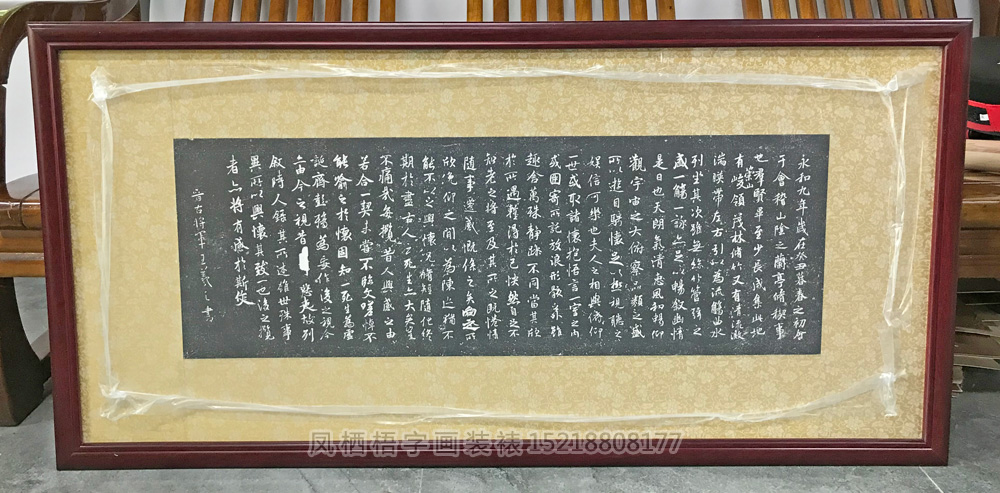 永和九年歲在癸丑暮春之初會
于會稽山陰之蘭亭脩稧事
也羣賢畢至少長咸集此地
有崇山峻領茂林脩竹又有清流激
湍暎帶左右引以為流觴曲水
列坐其次雖無絲竹管弦之
盛一觴一詠亦足以暢敘幽情
是日也天朗氣清惠風和暢仰
觀宇宙之大俯察品類之盛
所以遊目騁懷足以極視聽之
娛信可樂也夫人之相與俯仰
一世或取諸懷抱悟言一室之內
或因寄所託放浪形骸之外雖
趣舍萬殊靜躁不同當其欣
於所遇暫得於己快然自足不
知老之將至及其所之既惓情
隨事遷感慨係之矣向之所
欣俛仰之間以為陳迹猶不
能不以之興懷況脩短隨化終
期於盡古人云死生亦大矣豈
不痛哉每攬昔人興感之由
若合一契未嘗不臨文嗟悼不
能喻之於懷固知一死生為虛
誕齊彭殤為妄作後之視今
亦由今之視昔悲夫故列
敘時人錄其所述雖世殊事
異所以興懷其致一也後之攬
者亦將有感於斯文
晉右將軍王羲之書
凤栖梧字画装裱15218808177